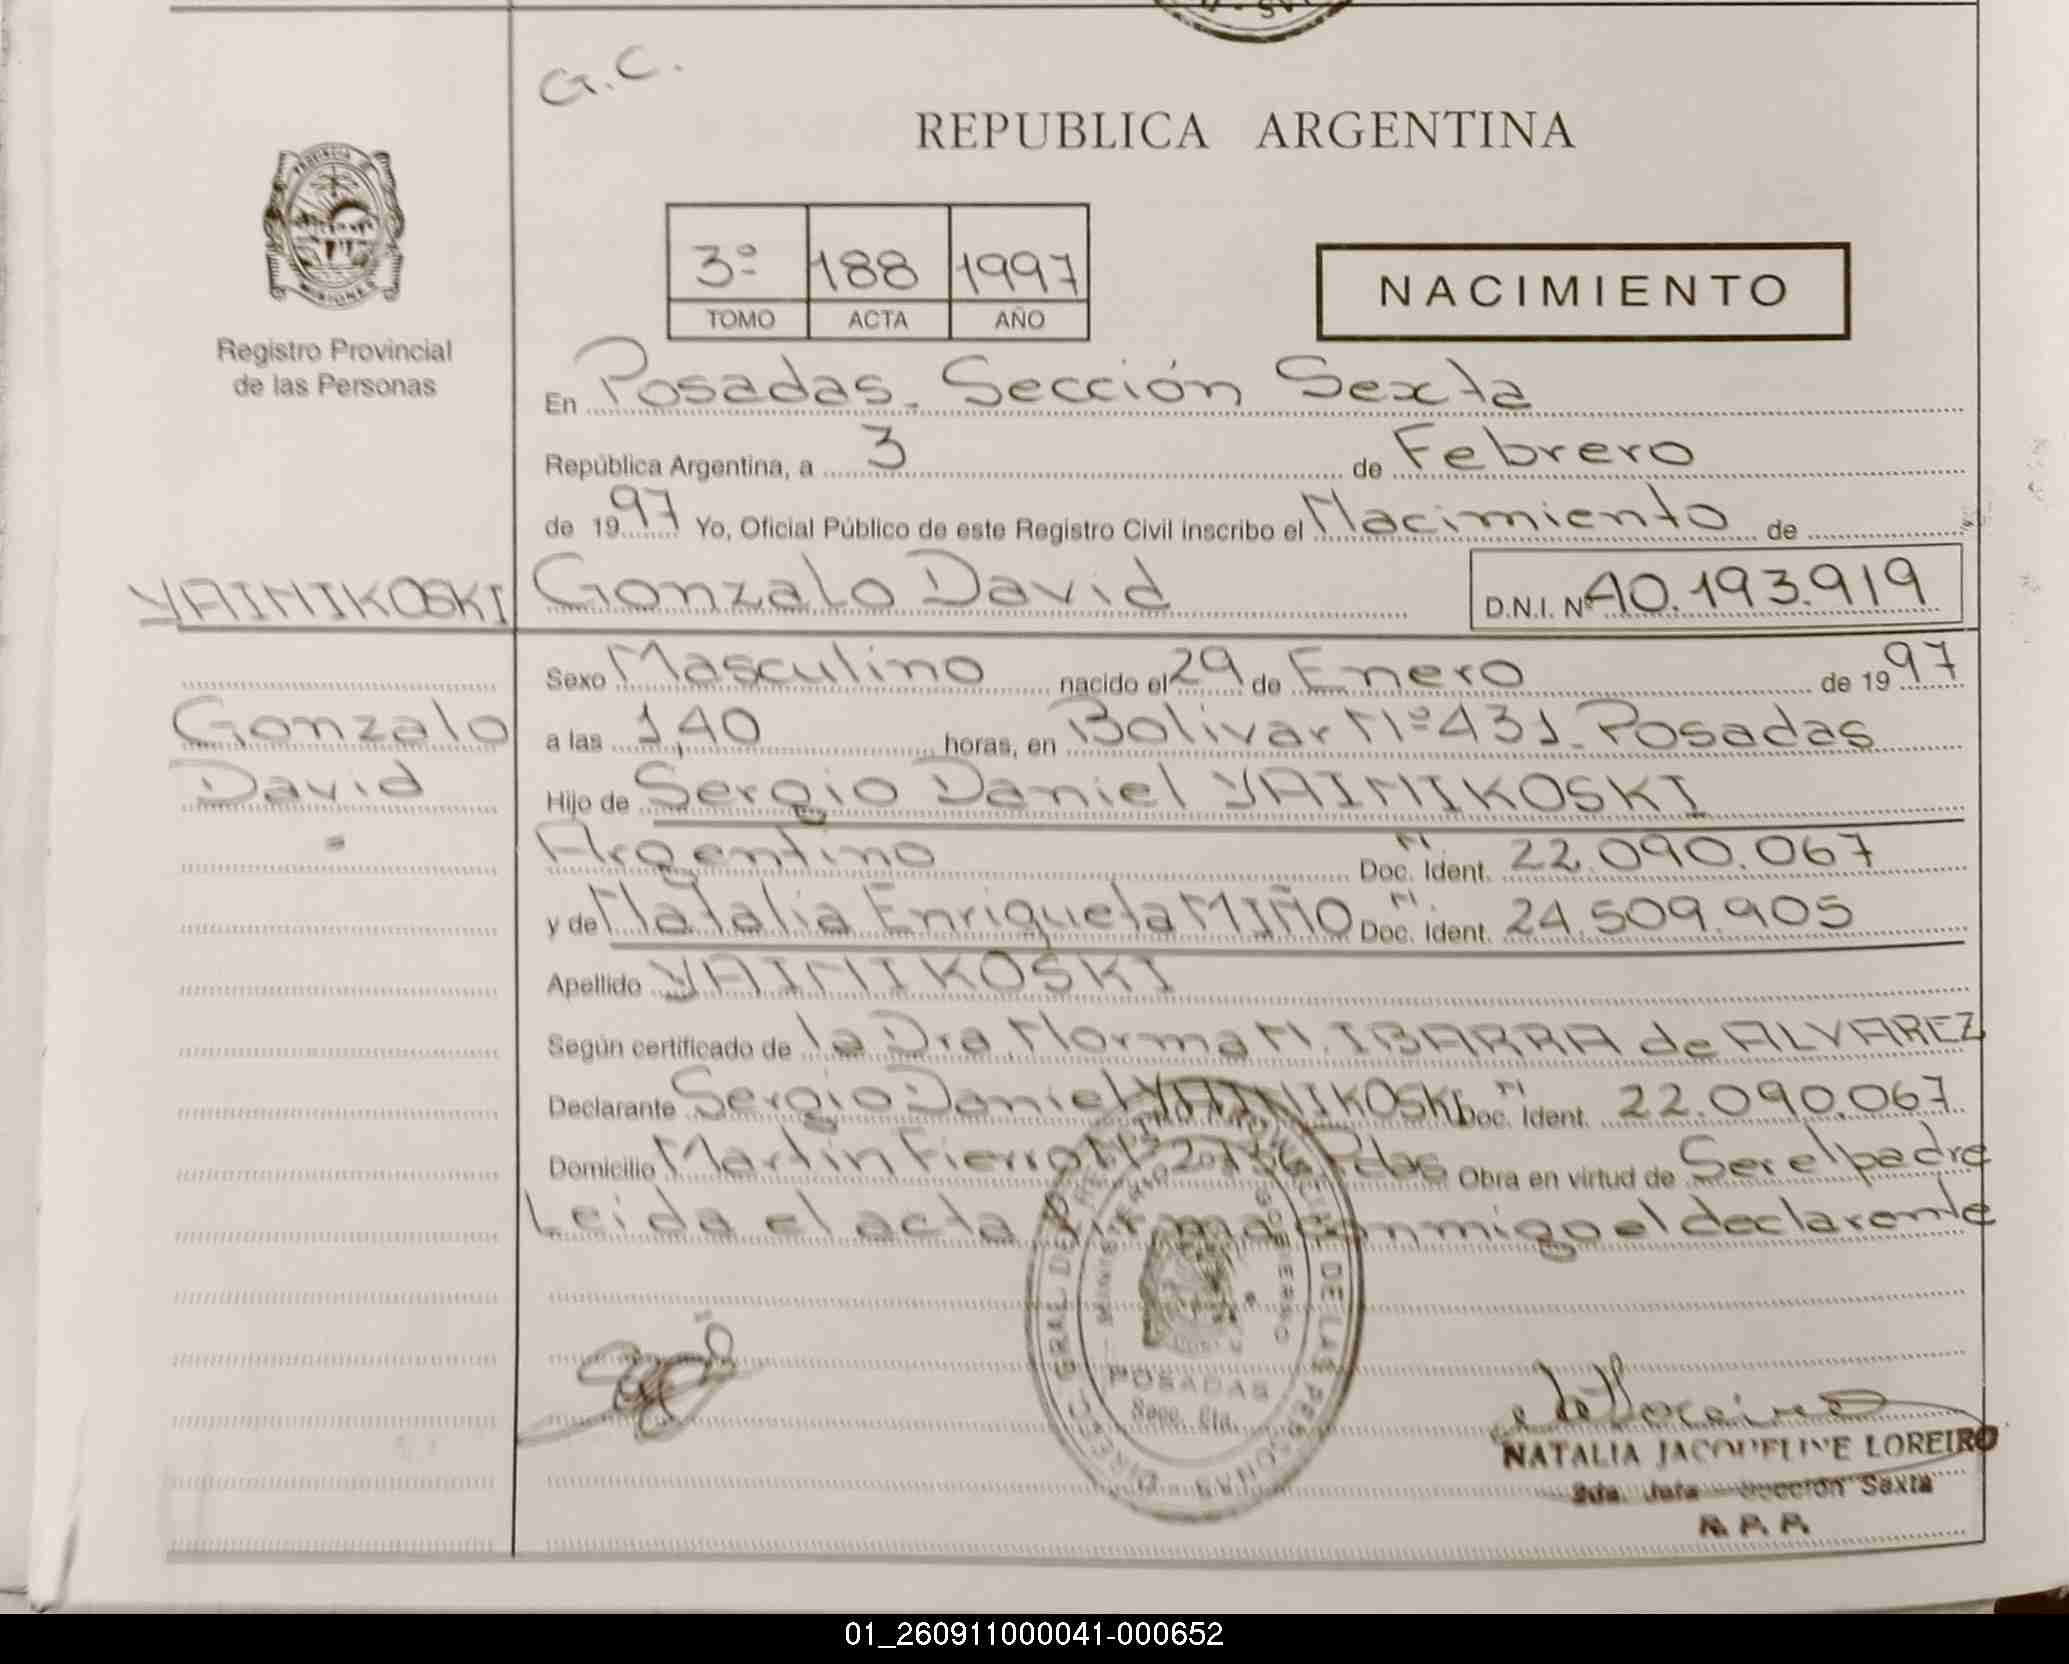 G.C.
REPUBLICA ARGENTINA
3º 188 1997
TOMO ACTA AÑO
NACIMIENTO
PROVINCIA
MISIONES
Registro Provincial
de las Personas
En Posadas. Sección Sexta
República Argentina, a 3 de Febrero
de 1997 Yo, Oficial Público de este Registro Civil inscribo el Nacimiento de
YAINIKOSKI Gonzalo David D.N.I. Nº 40.193.919
Sexo Masculino nacido el 29 de Enero de 1997
Gonzalo
David
a las 1,40 horas, en Bolivar Nº 431. Posadas
Hijo de Sergio Daniel YAINIKOSKI
Argentino N. Doc. Ident. 22.090.067
y de Natalia Enriqueta MIÑO N. Doc. Ident. 24.509.905
Apellido YAINIKOSKI
Según certificado de la Dra Norma N. IBARRA de ALVAREZ
Declarante Sergio Daniel YAINIKOSKI N. Doc. Ident. 22.090.067
Domicilio Martin Fierro Nº Pdas Obra en virtud de Ser el padre
Leida el acta firma conmigo el declarante
POSADAS
Secc. 6ta.
NATALIA JACQUELINE LOREIRO
2da. Jefe Sección Sexta
R. P. P.
01_260911000041-000652